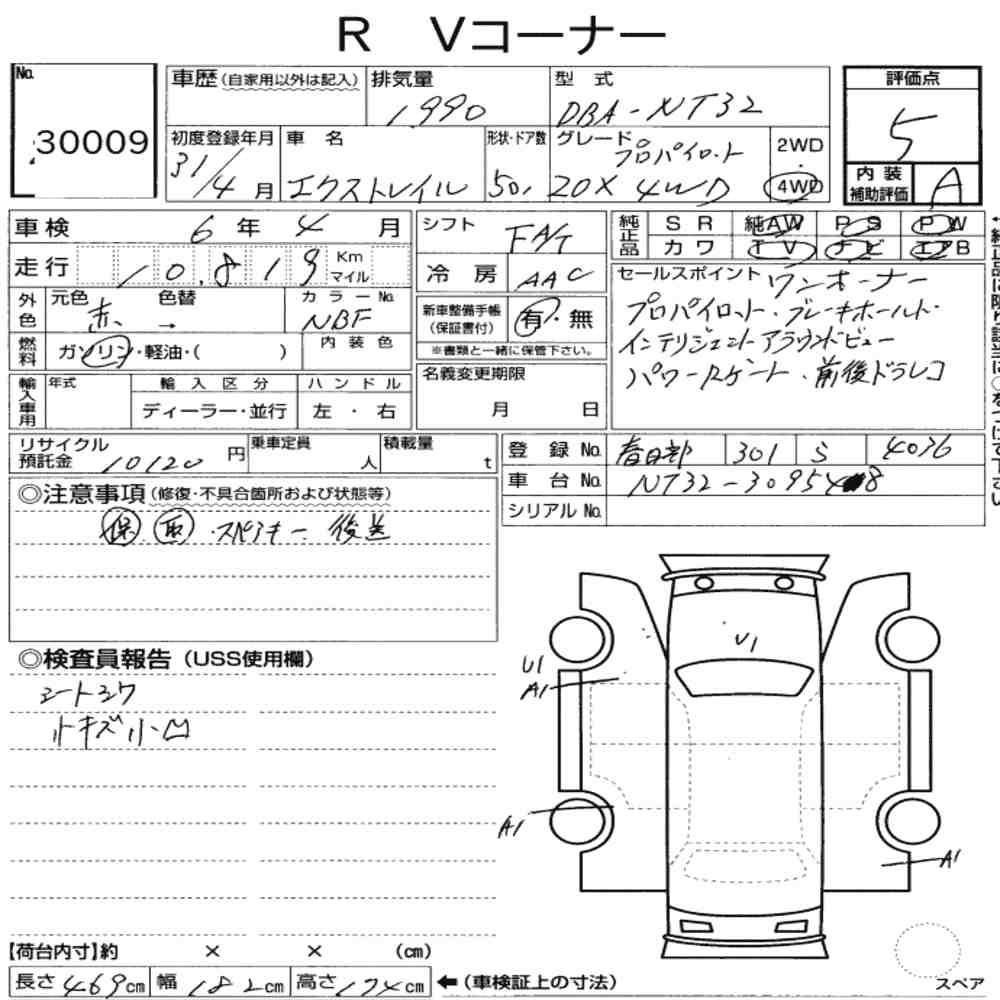 R Vコーナー
No. 30009
車歴(自家用以外は記入) 排気量 1990 型式 DBA-NT32
初度登録年月 31/4月 車名 エクストレイル 形状・ドア数 5D グレード プロパイロット 20X 4WD 2WD・4WD
評価点 5
内装補助評価 A
車検 6年4月
走行 10,819 Km マイル
外色 元色 赤 → 色替 カラーNo. NBF
燃料 ガソリン・軽油・( ) 内装色
輸入車用 年式 輸入区分 ディーラー・並行 ハンドル 左・右
シフト FAT
冷房 AAC
新車整備手帳(保証書付) 有・無
※書類と一緒に保管下さい。
名義変更期限 月 日
純正品 SR 純AW PS PW
カワ TV ナビ エアB
セールスポイント ワンオーナー
プロパイロット・ブレーキホールド・
インテリジェントアラウンドビュー
パワーRゲート・前後ドラレコ
リサイクル預託金 10120円 乗車定員 人 積載量 t
登録No. 春日部 301 S 4036
車台No.
シリアルNo.
◎注意事項(修復・不具合箇所および状態等)
保 取・スペアキー 後送
◎検査員報告(USS使用欄)
シートシワ
小キズ小凹
U1
U1
A1
A1
A1
【荷台内寸】約 × × (cm)
長さ 469cm 幅 182cm 高さ 174cm ←(車検証上の寸法)
スペア